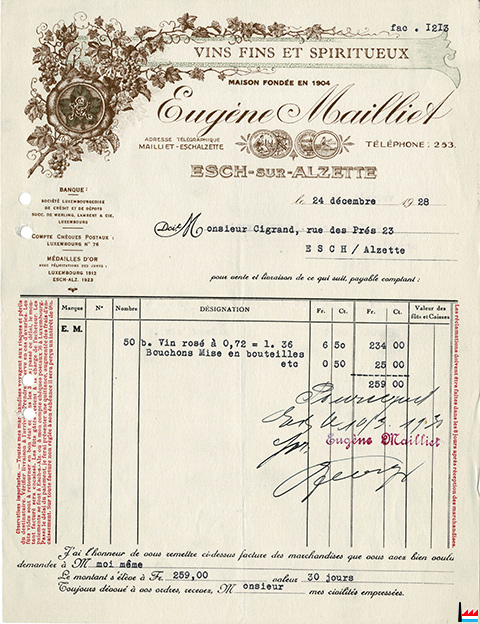 fac. 1213
VINS FINS ET SPIRITUEUX
MAISON FONDÉE EN 1904
Eugène Mailliet
ADRESSE TÉLÉGRAPHIQUE
MAILLIET-ESCHALZETTE
TÉLÉPHONE: 253.
ESCH-SUR-ALZETTE
le 24 décembre 1928
BANQUE:
SOCIÉTÉ LUXEMBOURGEOISE
DE CRÉDIT ET DE DÉPOTS
SUCC. DE WERLING, LAMBERT & CIE,
LUXEMBOURG
COMPTE CHÈQUES POSTAUX:
LUXEMBOURG N° 76
MÉDAILLES D'OR
AVEC FÉLICITATIONS DES JURYS:
LUXEMBOURG 1912
ESCH-ALZ. 1923
Doit Monsieur Cigrand, rue des Prés 23
ESCH/Alzette
pour vente et livraison de ce qui suit, payable comptant:
Marque N° Nombre DÉSIGNATION Fr. Ct. Fr. Ct. Valeur des fûts et Caisses
E. M.
50 b. Vin rosé à 0,72 = l. 36 6 50 234 00
Bouchons Mise en bouteilles
etc 0 50 25 00
259 00
Pour acquit
Esch
Eugène Mailliet
Les réclamations doivent être faites dans les 8 jours après réception des marchandises.
J'ai l'honneur de vous remettre ci-dessus facture des marchandises que vous avez bien voulu
demander à M moi même
Le montant s'élève à Fr. 259,00 valeur 30 jours
Toujours dévoué à vos ordres, recevez, Monsieur mes civilités empressées.